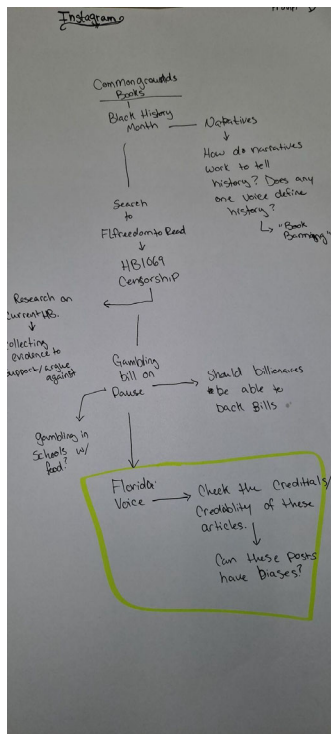 Instagram
Commongrounds
Books
Black History
Month
Narratives
How do narratives
work to tell
history? Does any
one voice define
history?
"Book
Banning"
Search
to
Flfreedom to Read
HB1069
Censorship
Research on
Current HB.
ollecting
evidence to
support/argue
against
Gambling
bill on
Pause
Should billionaires
be able to
back Bills
gambling in
Schools w/
food?
Florida
Voice
Check the Credittals/
Credability of these
articles.
Can these posts
have biases?